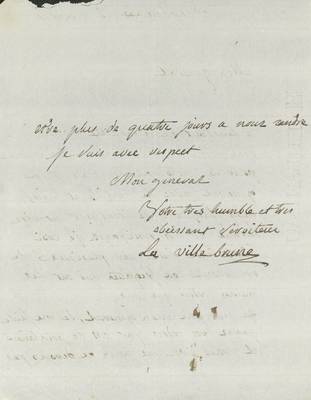 etre plus de quatre jours a nous rendre
je suis avec respect
Mon general
Votre tres humble et tres
obeissant serviteur
La ville brune